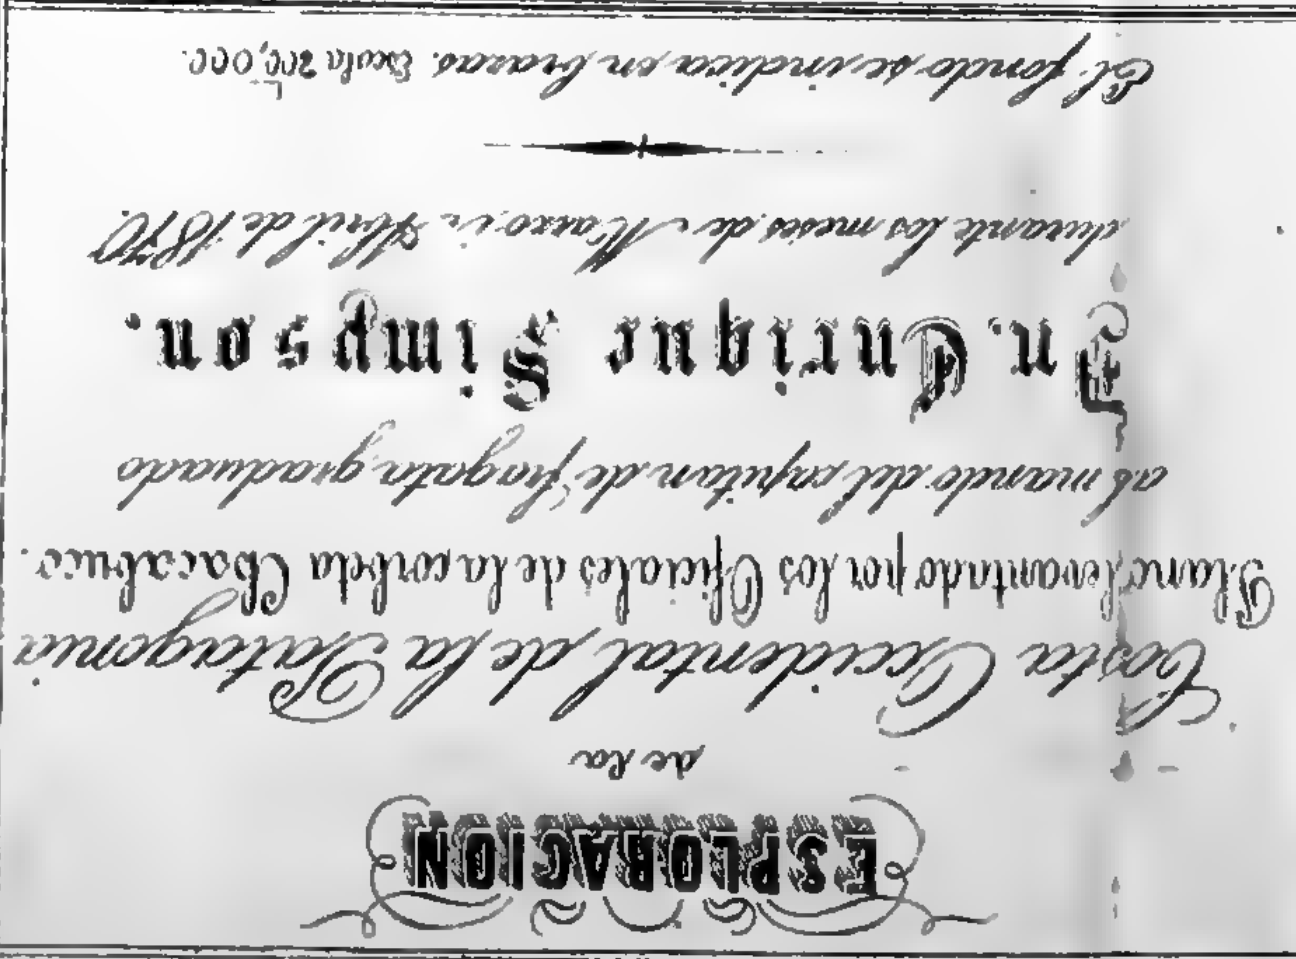 ESPLORACION
de la
Costa Occidental de la Patagonia
Plano levantado por los Oficiales de la corbeta Chacabuco.
al mando del capitan de fragata graduado
Dn. Enrique Simpson.
durante los meses de Marzo i Abril de 1870.
El fondo se indica en brazas. Escala 1/200,000.